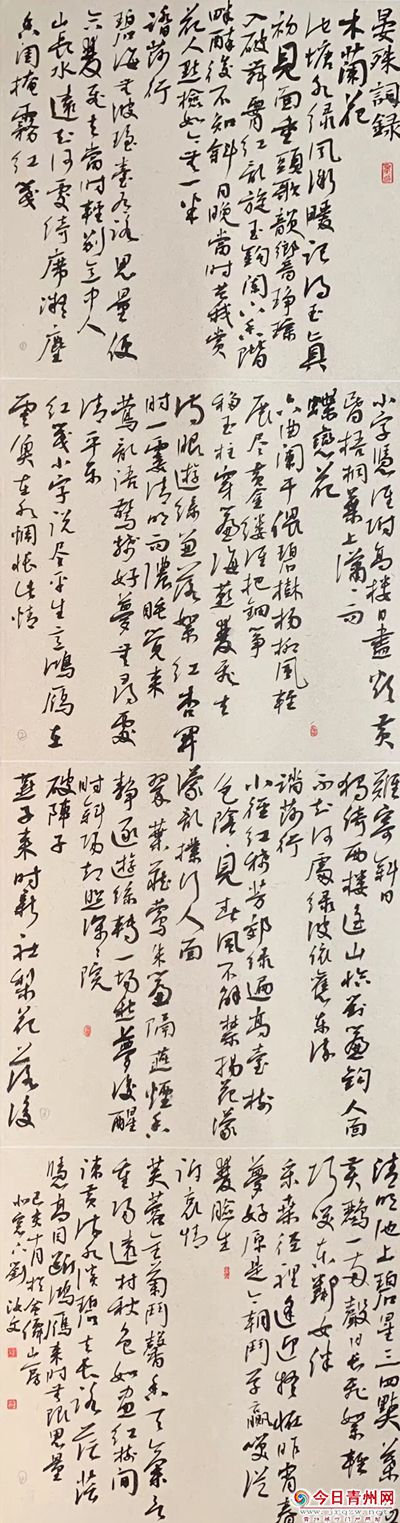 晏殊詞錄
木蘭花
池塘水绿風微暖记得玉真
初見面重頭歌韻響琤琮
入破舞腰红亂旋玉鉤闌下香階
畔醉後不知斜日晚當时共我赏
花人點檢如今無一半
踏莎行
碧海無波瑶臺有路思量便
合雙飛去當时輕别意中人
山長水遠知何處绮席凝塵
香閨掩霧红箋
小字憑谁附高樓目盡欲黄
昏梧桐葉上瀟々雨
蝶戀花
六曲闌干偎碧樹楊柳風輕
展尽黄金缕谁把钿筝
移玉柱穿簾海燕雙飛去
满眼遊絲兼落絮红杏開
时一霎清明雨濃睡覺来
莺亂語驚殘好夢無尋處
清平乐
红箋小字说尽平生意鴻雁在
雲魚在水惆怅此情
難寄斜日
獨倚西樓遥山恰對簾鉤人面
不知何處绿波依舊東流
踏莎行
小徑红稀芳郊绿遍高臺樹
色陰々見春風不解禁楊花濛
濛亂撲行人面
翠葉藏莺朱簾隔燕爐香
静逐遊絲轉一場愁夢酒醒
时斜陽却照深々院
破陣子
燕子来时新社梨花落後
清明池上碧苔三四點葉底
黄鹂一兩聲日長飛絮輕
巧笑東鄰女伴
采桑徑裡逢迎疑怪昨宵春
夢好原是今朝鬥草贏笑從
雙臉生
诉衷情
芙蓉金菊鬥馨香天氣欲
重陽遠村秋色如畫红樹間
疏黄流水淡碧天長路茫茫
憑高目斷鴻雁来时無限思量
己亥十月於
劉汝文
今日青州网